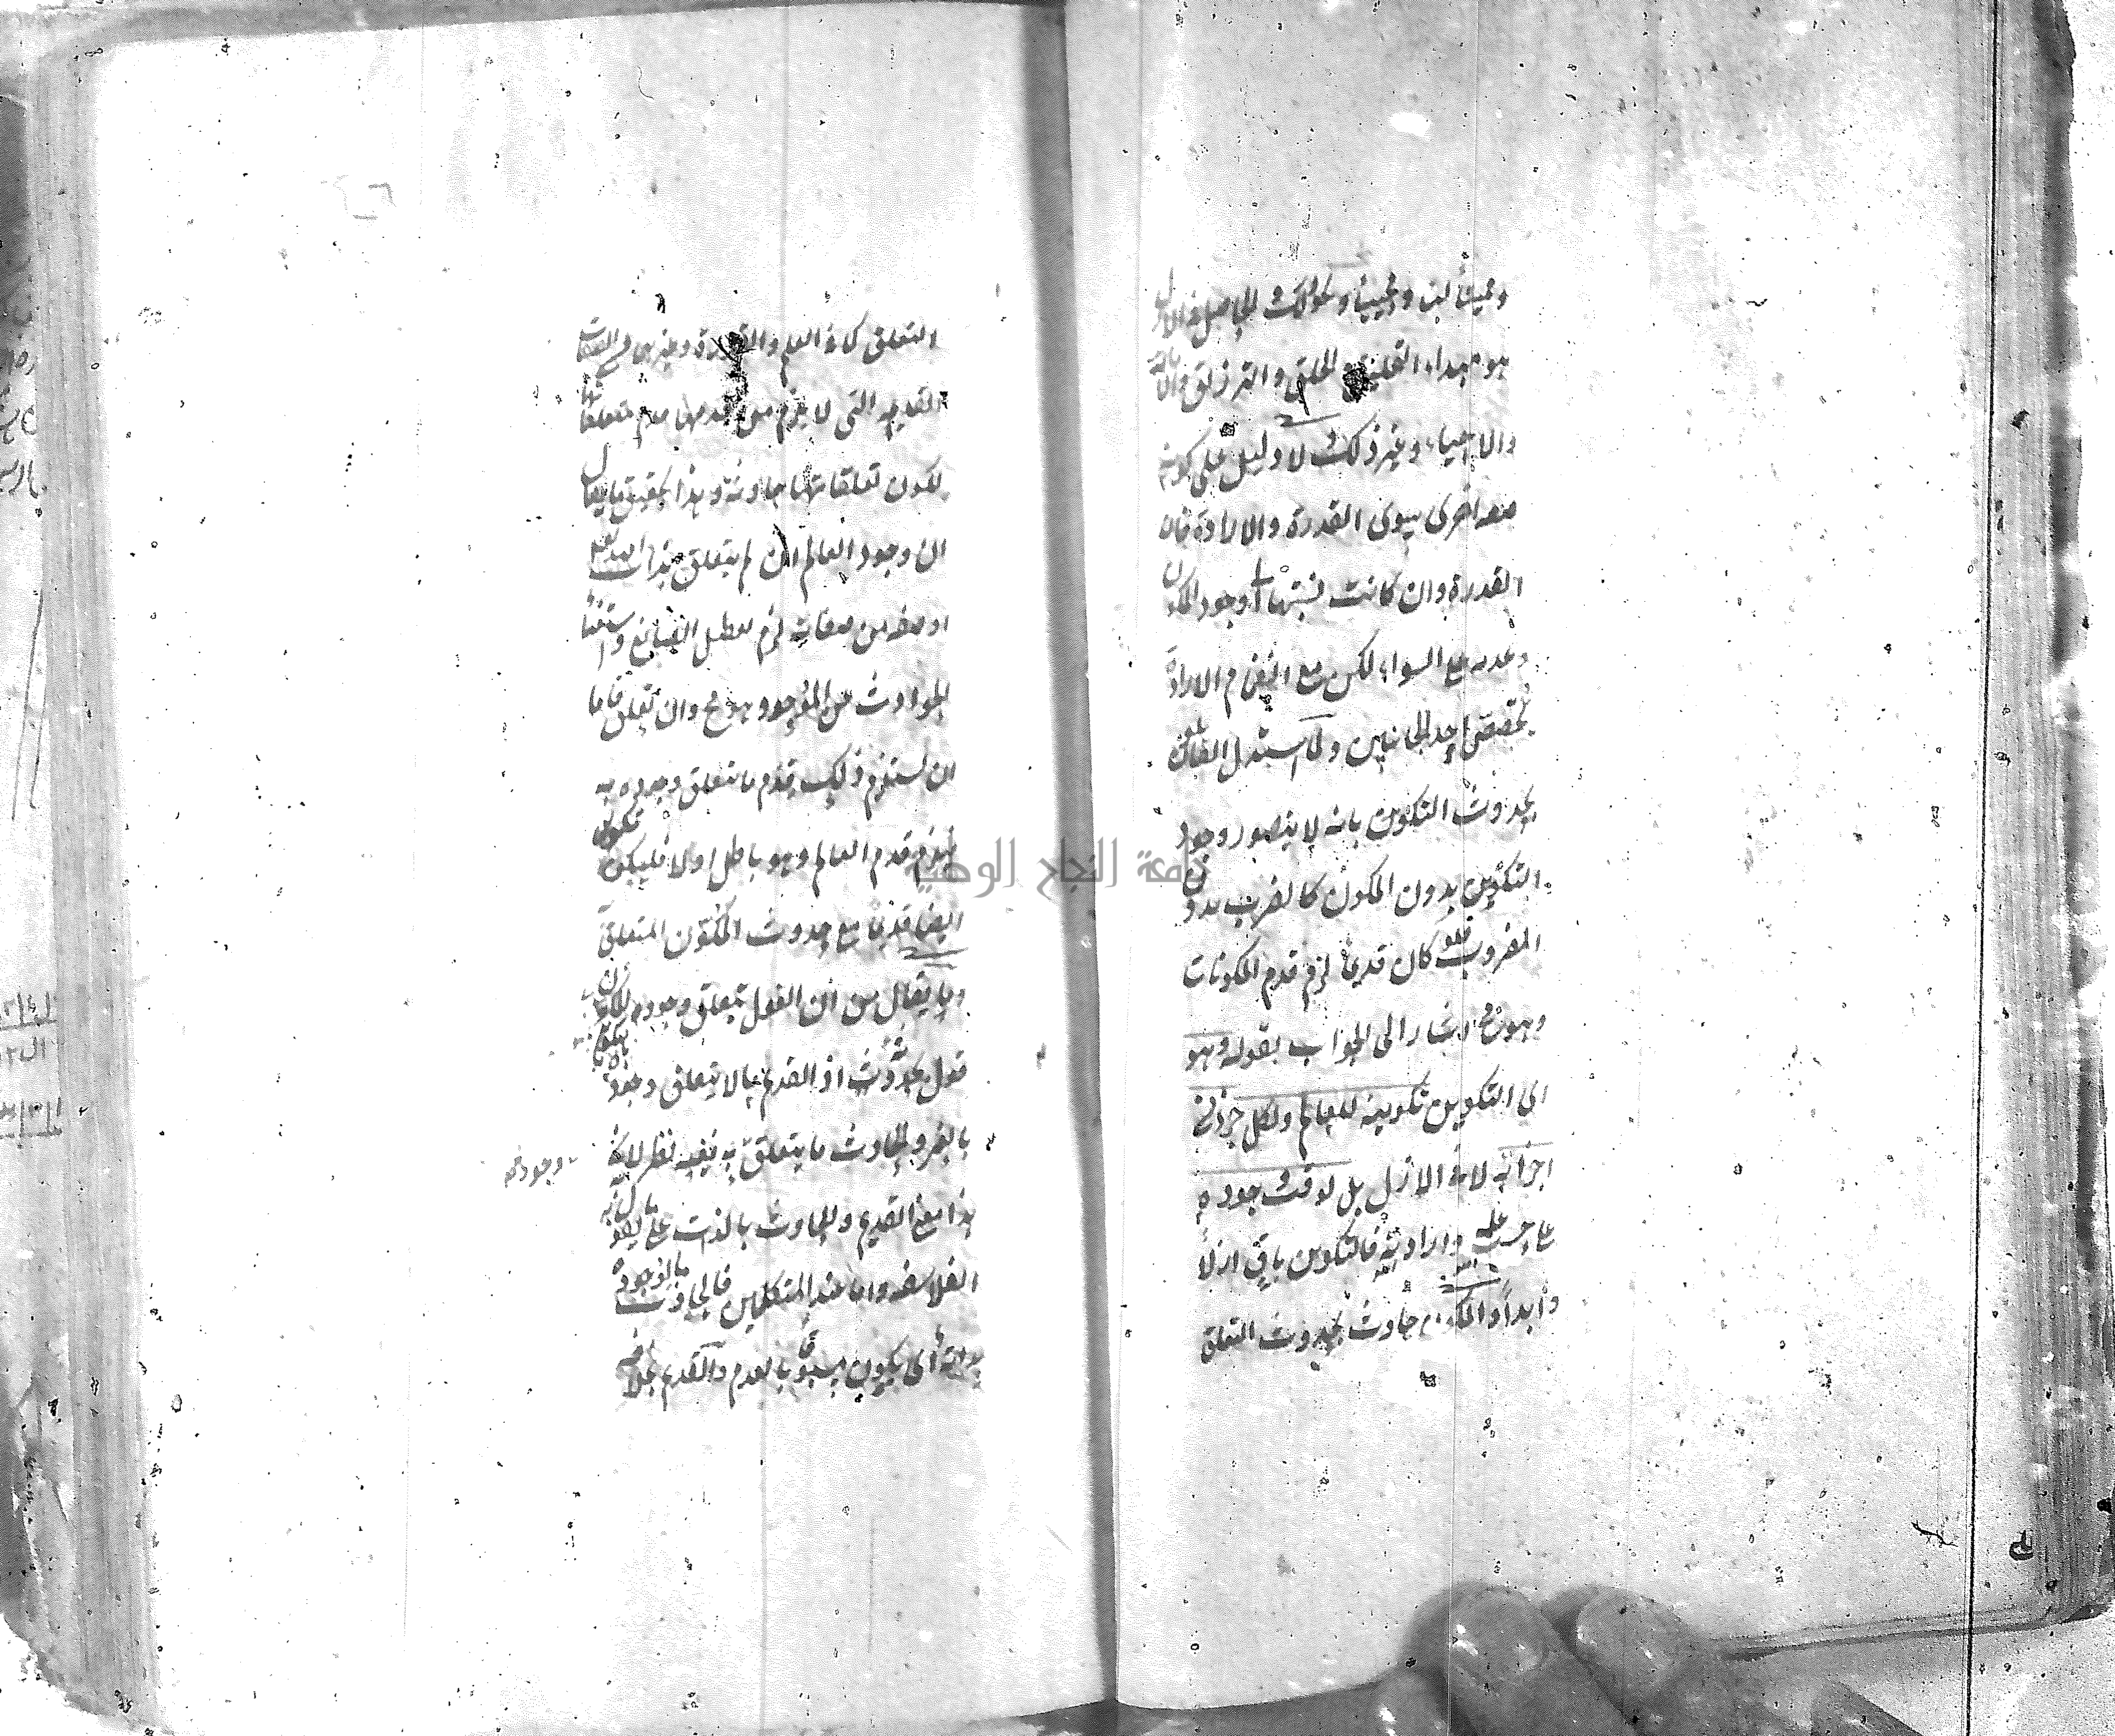 ومميتا لنا ومحييا ونحو ذلك والحاصل في الازل
هو مبداء التخليق والترزيق والاماتة
والاحياء وغير ذلك ولا دليل على كونه
صفة اخرى سوى القدرة والارادة فان
القدرة وان كانت نسبتها الى وجود المكون
وعدمه على السواء لكن مع انضمام الارادة
يتخصص احد الجانبين ولما استدل القائلون
بحدوث التكوين بانه لا يتصور وجود
التكوين بدون المكون كالضرب بدون
المضروب فلو كان قديما لزم قدم المكونات
وهو مح اشار الى الجواب بقوله وهو
اي التكوين تكوينه للعالم ولكل جزء من
اجزائه لا في الازل بل لوقت وجوده
على حسب علمه وارادته فالتكوين باق ازلا
وابدا والمكون حادث بحدوث التعلق
التعلق كما في العلم والقدرة وغيرهما من الصفات
القديمة التي لا يلزم من قدمها قدم متعلقاتها
لكون تعلقاتها حادثة وهذا تحقيق ما يقال
ان وجود العالم ان لم يتعلق بذات الله تعالى
او صفة من صفاته لزم تعطيل الصانع واستغناء
الحوادث عن الموجد وهو مح وان تعلق فاما
ان يستلزم ذلك قدم ما يتعلق وجوده به
فيلزم قدم العالم وهو باطل اولا فليكن التكوين
ايضا قديما مع حدوث المكون المتعلق
وما يقال من ان القول بتعلق وجود المكون بالتكوين
قول بحدوثه اذ القديم ما لا يتعلق وجوده
بالغير والحادث ما يتعلق به ففيه نظر لان
وجوده
هذا معنى القديم والحادث بالذات على ما يقول به
الفلاسفة واما عند المتكلمين فالحادث ما لوجوده
بداية اى يكون مسبوقا بالعدم والقديم بخلافه
جامعة النجاح الوطنية